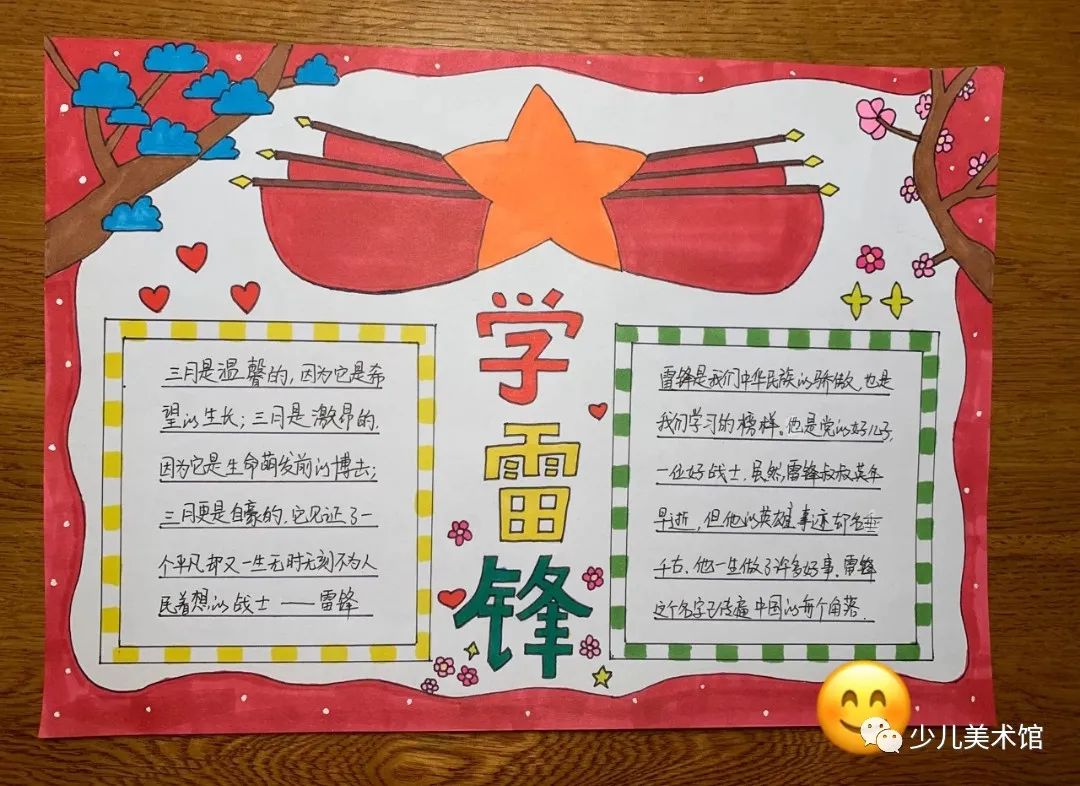 学雷锋
三月是温馨的，因为它是希
望的生长；三月是激昂的，
因为它是生命萌发前的搏击；
三月更是自豪的，它见证了一
个平凡却又一生无时无刻不为人
民着想的战士——雷锋
雷锋是我们中华民族的骄傲，也是
我们学习的榜样。他是党的好儿子，
一位好战士，虽然，雷锋叔叔英年
早逝，但他的英雄事迹却名垂
千古，他一生做了许多好事，雷锋
这个名字已传遍中国的每个角落．
少儿美术馆